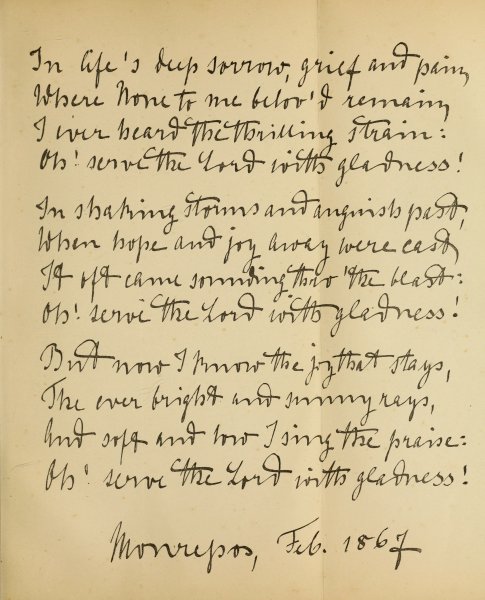 In life's deep sorrow, grief and pain,
Where None to me belov'd remain,
I ever heard the thrilling strain:
Oh! serve the Lord with gladness!
In shaking storms and anguish past,
When hope and joy away were cast,
It oft came sounding thro' the blast:
Oh! serve the Lord with gladness!
But now I know the joy that stays,
The ever bright and sunny rays,
And soft and low I sing the praise:
Oh! serve the Lord with gladness!
Monrepos, Feb. 1867